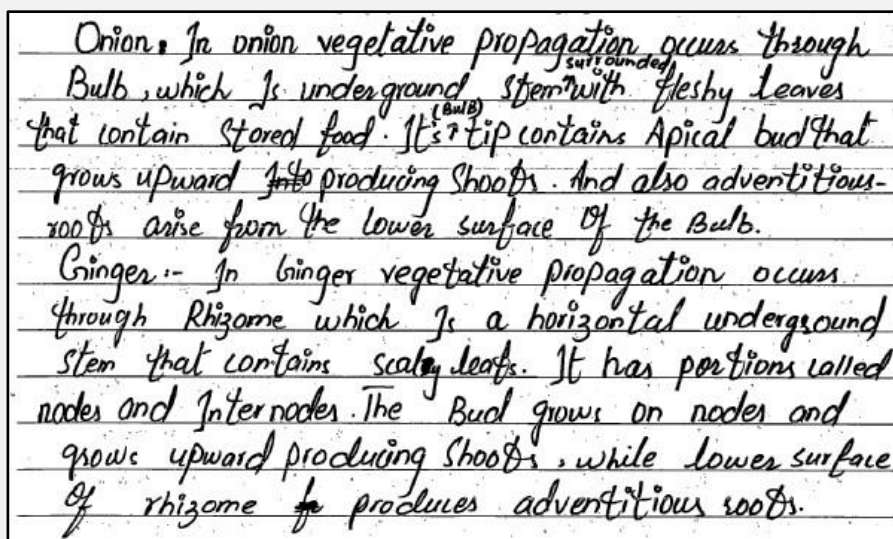 Onion. In onion vegetative propagation occurs through
Bulb, which Is underground stem surrounded with fleshy leaves
that contain Stored food. It's (Bulb) tip contains Apical bud that
grows upward Into producing Shoots. And also adventitious-
roots arise from the lower surface Of the Bulb.
Ginger:- In Ginger vegetative propagation occurs
through Rhizome which Is a horizontal underground
stem that contains scaly leafs. It has portions called
nodes and Internodes. The Bud grows on nodes and
grows upward producing Shoots, while lower surface
Of rhizome produces adventitious roots.